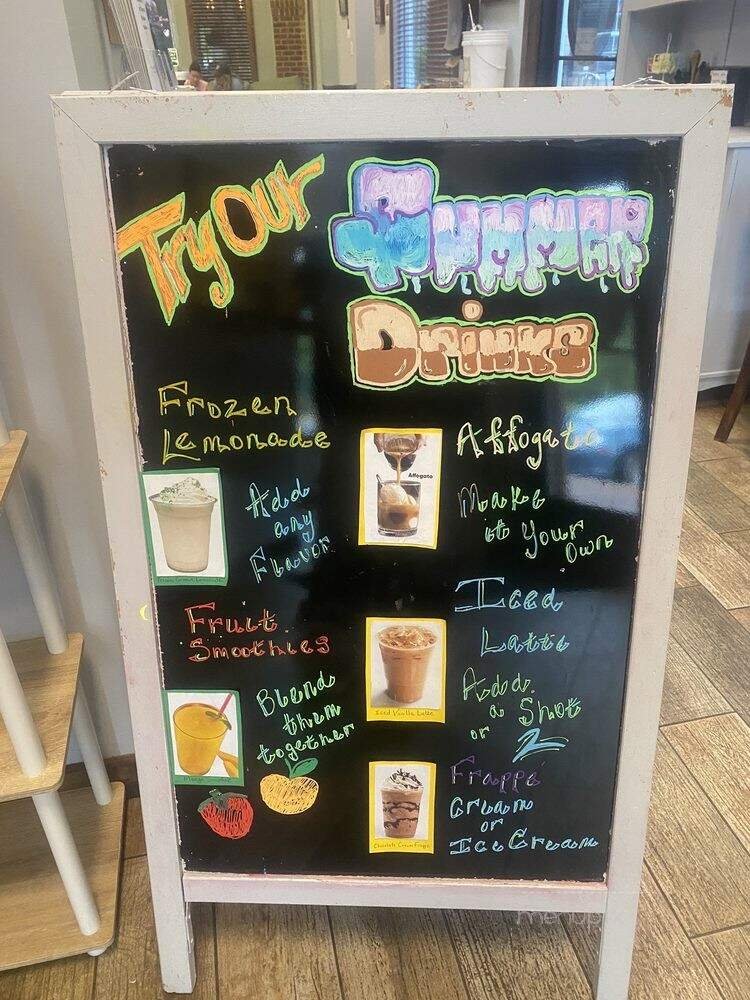 Try Our
Summer
Drinks
Frozen
Lemonade
Add
any
Flavor
Fruit
Smoothies
Blend
them
together
Affogato
Affogato
Make
it Your
Own
Iced
Latte
Iced Vanilla Latte
Add
a Shot
or 2
Frappé
Cream
or
Ice Cream
Chocolate Cream Frappe